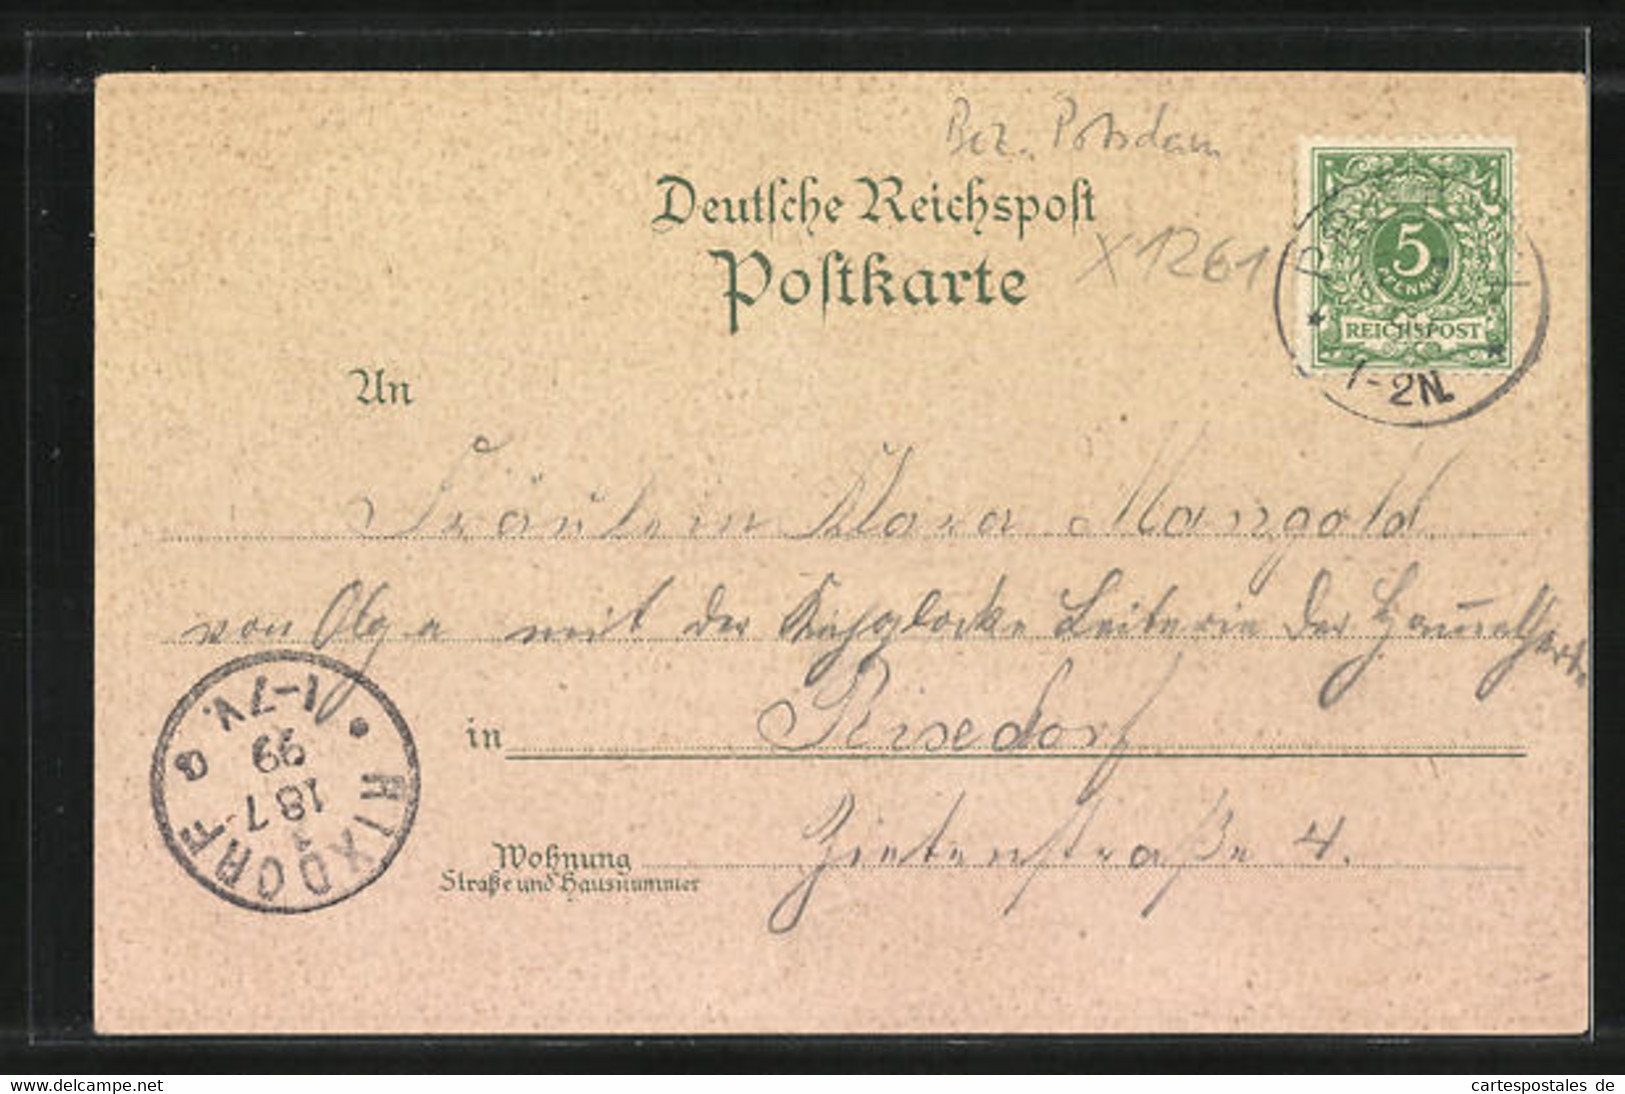 Bez. Potsdam
Deutsche Reichspost
Postkarte
X1261
5
PFENNIG
REICHSPOST
1-2N.
An
Fräulein Klara Mangold
von Olga mit der Leiterin der
in Rixdorf
Wohnung
Straße und Hausnummer
Zietenstraße 4.
RIXDORF
1
18 7
99
1-7V.
delcampe.net
cartespostales de